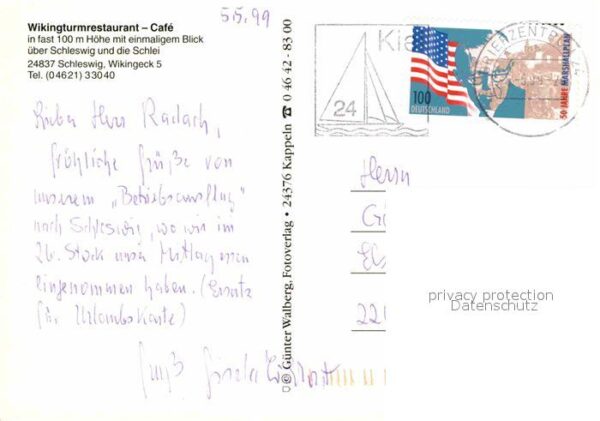 5.5.99
Wikingturmrestaurant – Café
in fast 100 m Höhe mit einmaligem Blick
über Schleswig und die Schlei
24837 Schleswig, Wikingeck 5
Tel. (0 46 21) 3 30 40
Lieber Herr Radach,
fröhliche Grüße von
unserem „Betriebsausflug"
nach Schleswig, wo wir im
26. Stock unser Mittagessen
eingenommen haben. (Ersatz
für Urlaubskarte)
Gruß
© Günter Walberg, Fotoverlag • 24376 Kappeln ☎ 0 46 42 - 83 00
Kie
24
BRIEFZENTRUM
100
DEUTSCHLAND
50 JAHRE MARSHALLPLAN
Herrn
G
22
privacy protection
Datenschutz